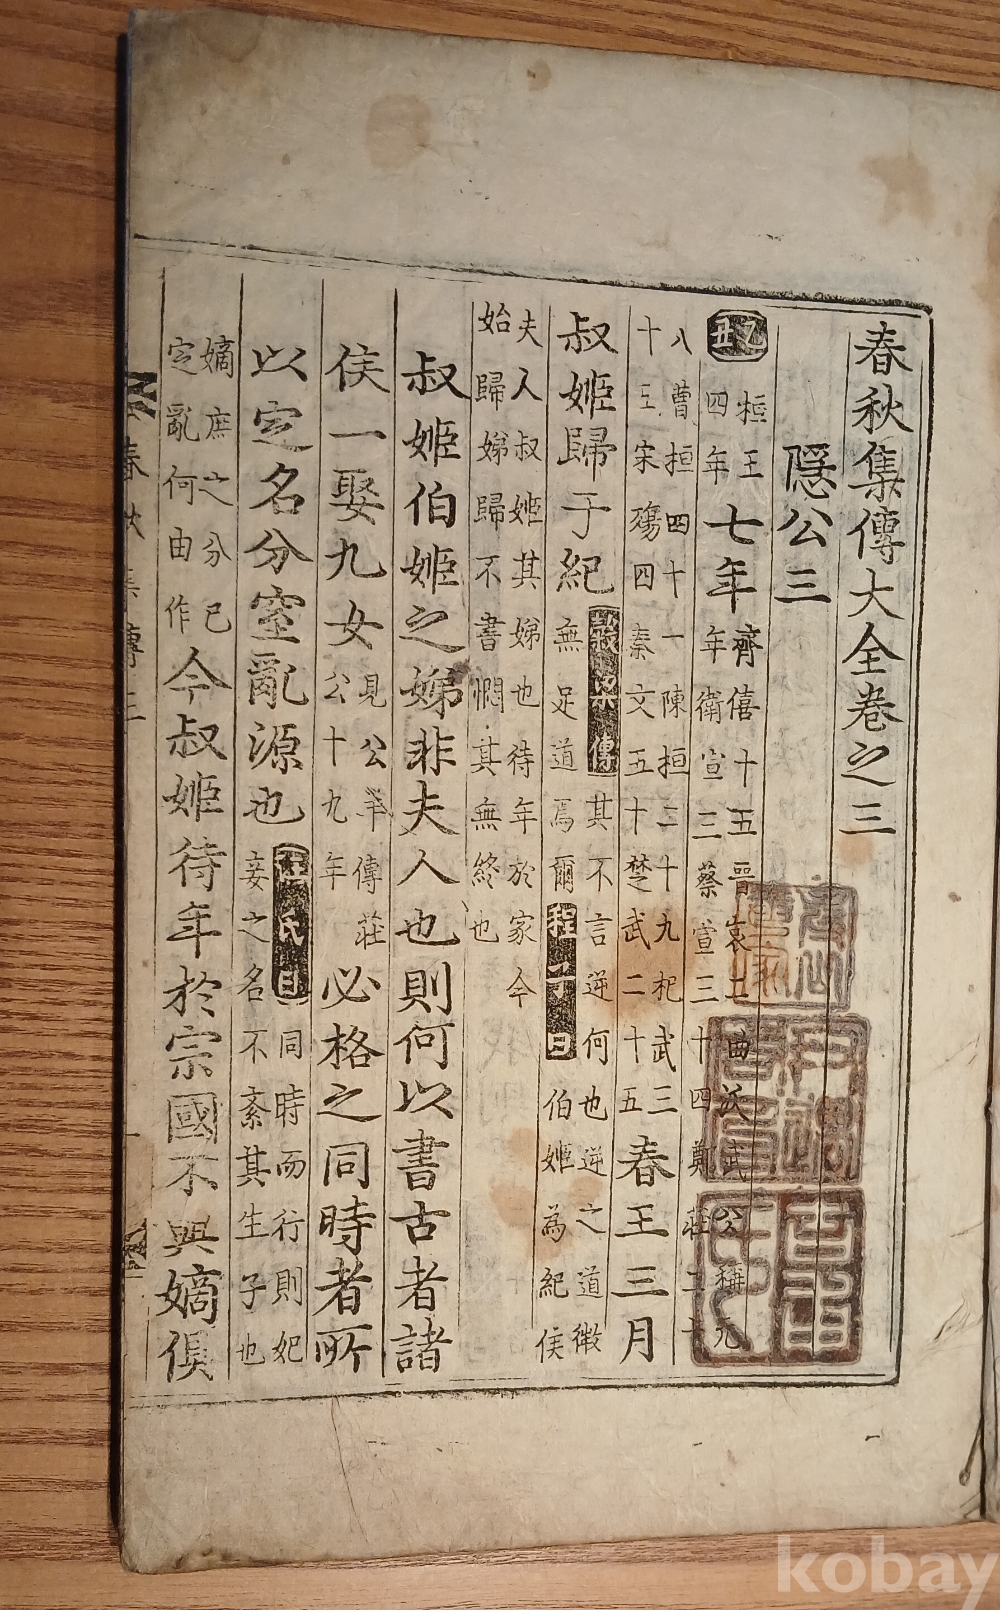 春秋集傳大全卷之三
隱公三
乙丑
桓王四年七年齊僖十五年衛宣三蔡宣三十四鄭莊二十
晉哀二曲沃武公稱元
八曹桓四十一陳桓二十九杞武三
十五宋殤四秦文五十楚武二十五春王三月
叔姬歸于紀穀梁傳其不言逆何也逆之道微
無足道焉爾程子曰伯姬為紀侯
夫人叔姬其娣也待年於家今
始歸娣歸不書憫其無終也
叔姬伯姬之娣非夫人也則何以書古者諸
侯一娶九女見公羊傳莊公十九年必格之同時者所
以定名分窒亂源也汪氏曰同時而行則妃
妾之名不紊其生子也
嫡庶之分已
定亂何由作今叔姬待年於宗國不與嫡俱
春秋集傳三
kobay